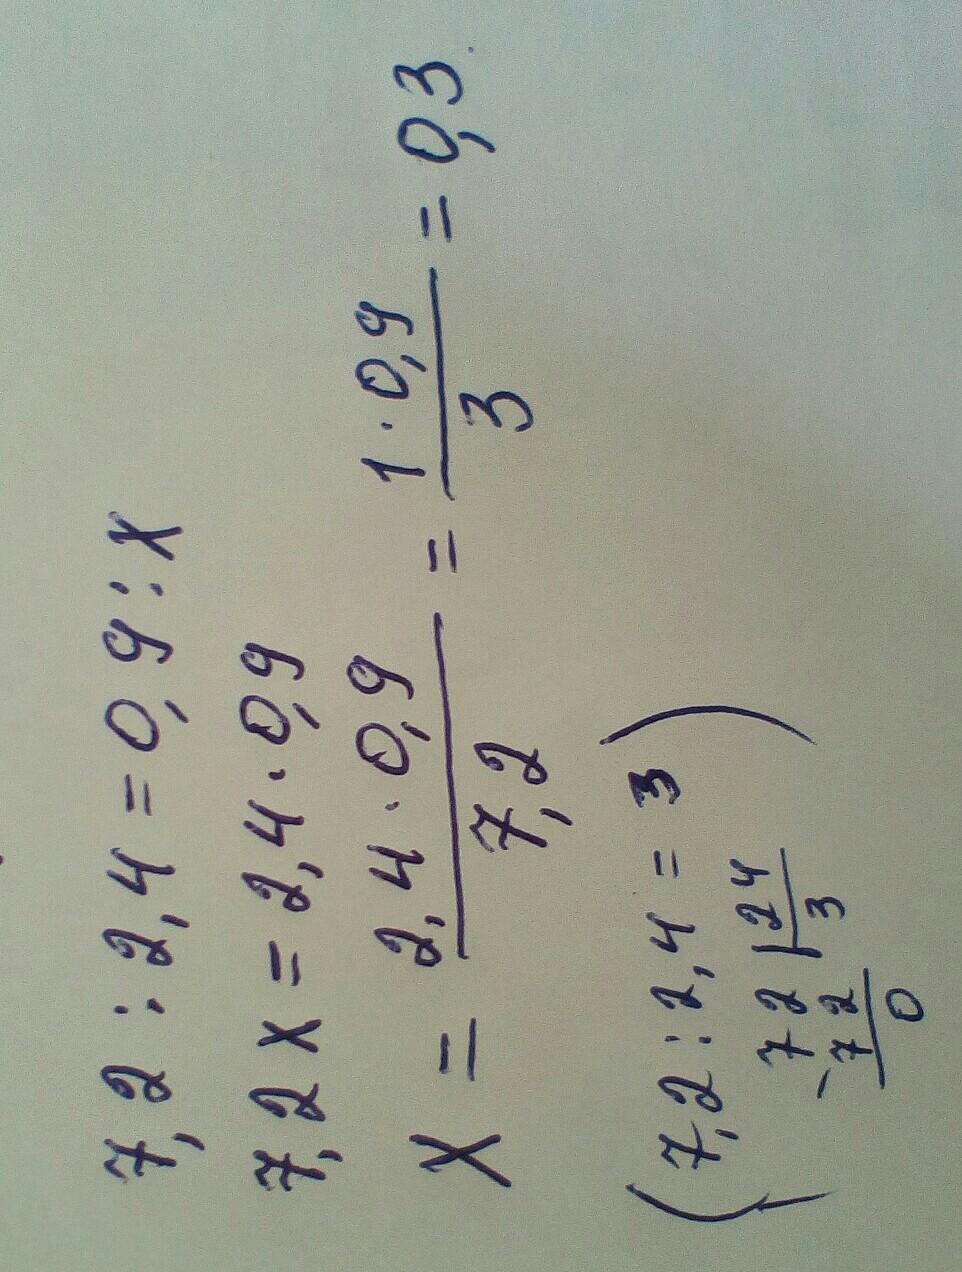 7,2 : 2,4 = 0,9 : x
7,2 x = 2,4 · 0,9
x = 2,4 · 0,9 / 7,2 = 1 · 0,9 / 3 = 0,3
(7,2 : 2,4 = 3)
72 | 24
-72 | 3
0